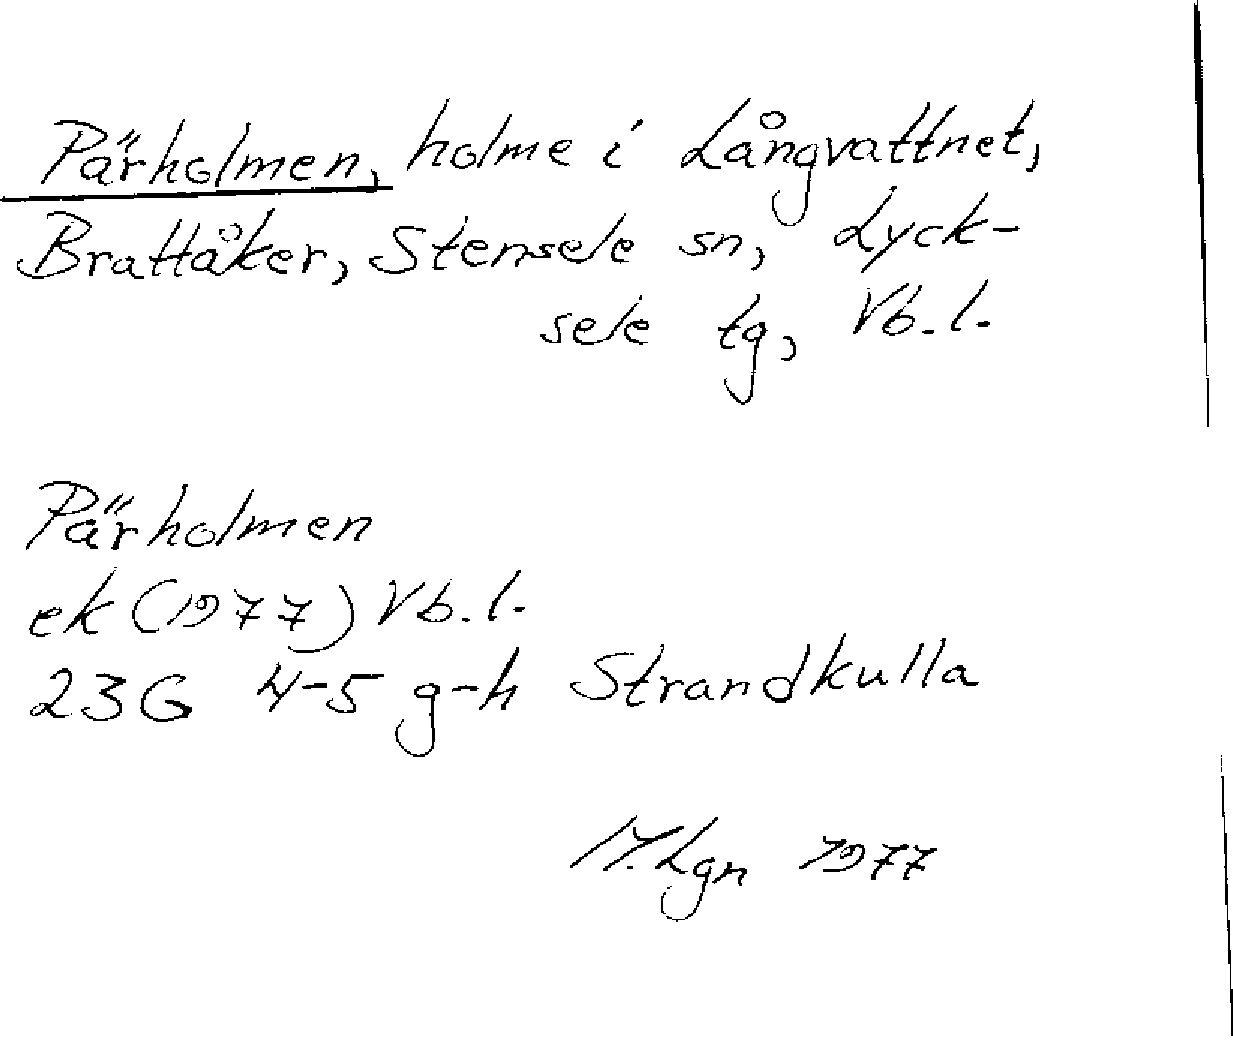 Pärholmen, holme i Långvattnet,
Brattåker, Stensele sn, Lyck-
sele tg, Vb.l.
Pärholmen
ek (1977) Vb.l.
23G 4-5 g-h Strandkulla
M.Lgn 1977